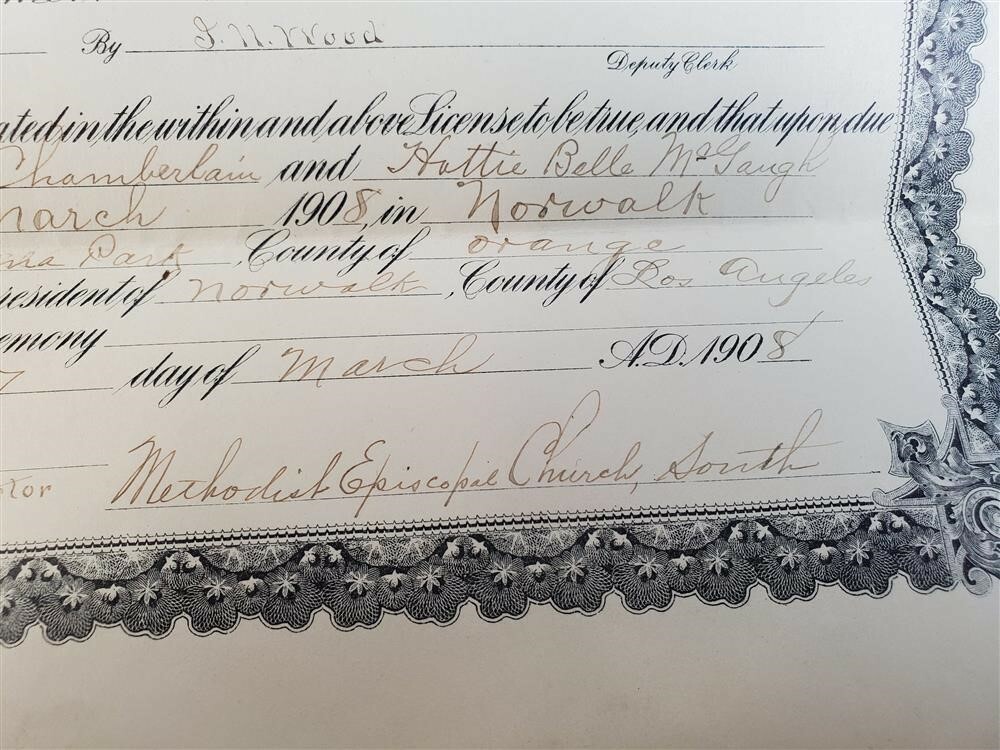 By J. N. Wood
Deputy Clerk
ated in the within and above License to be true, and that upon due
Chamberlain and Hattie Belle McGaugh
March 1908, in Norwalk
Park, County of Orange
resident of Norwalk, County of Los Angeles
emony
7 day of March A.D. 1908
tor Methodist Episcopal Church, South